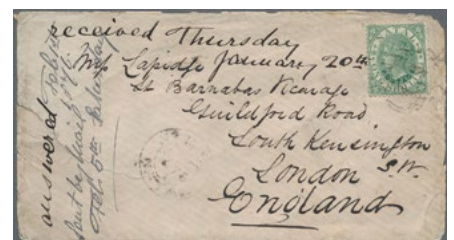 received Thursday
January 20th
Mrs Lapidge
St Barnabas Vicarage
Guildford Road
South Kensington
London S.W.
England
answered
Feb. 5th Saturday
NATAL